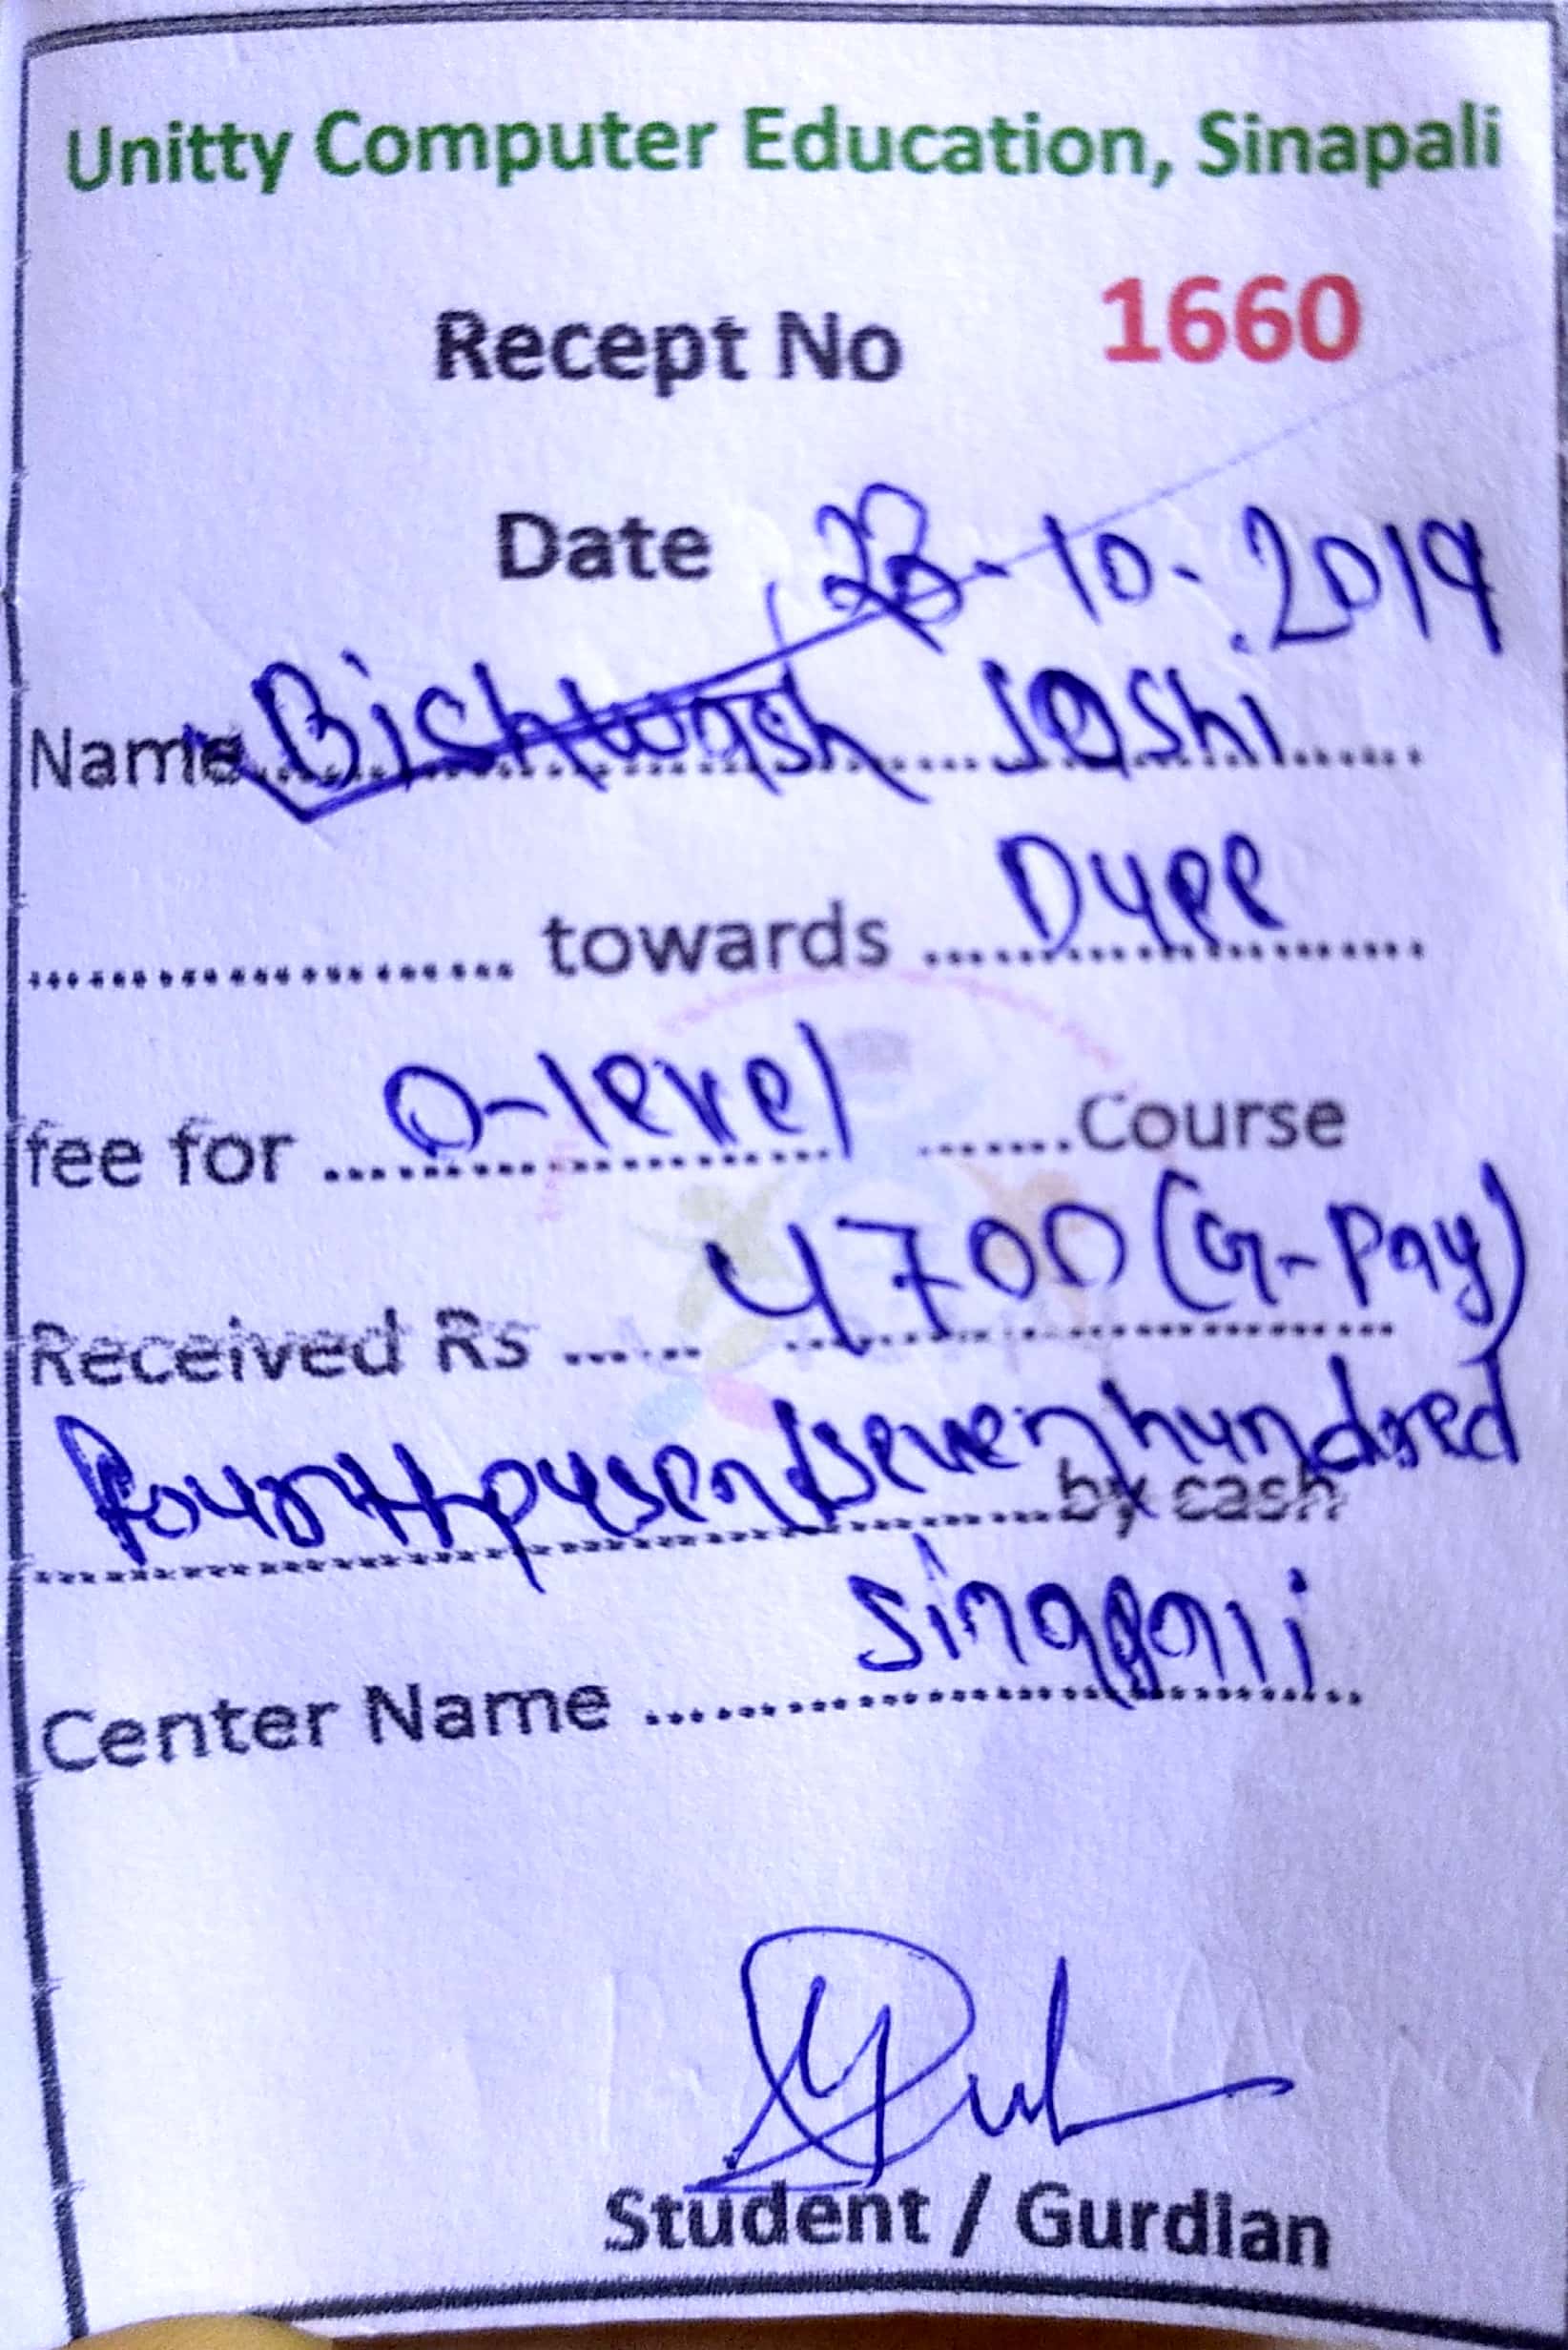 Unitty Computer Education, Sinapali
Recept No 1660
Date 23-10-2019
Name Bishwash Joshi
towards Duee
fee for O-level Course
Received Rs 4700 (G-Pay)
seven hundred by cash
Center Name Sinapali
Student / Gurdian